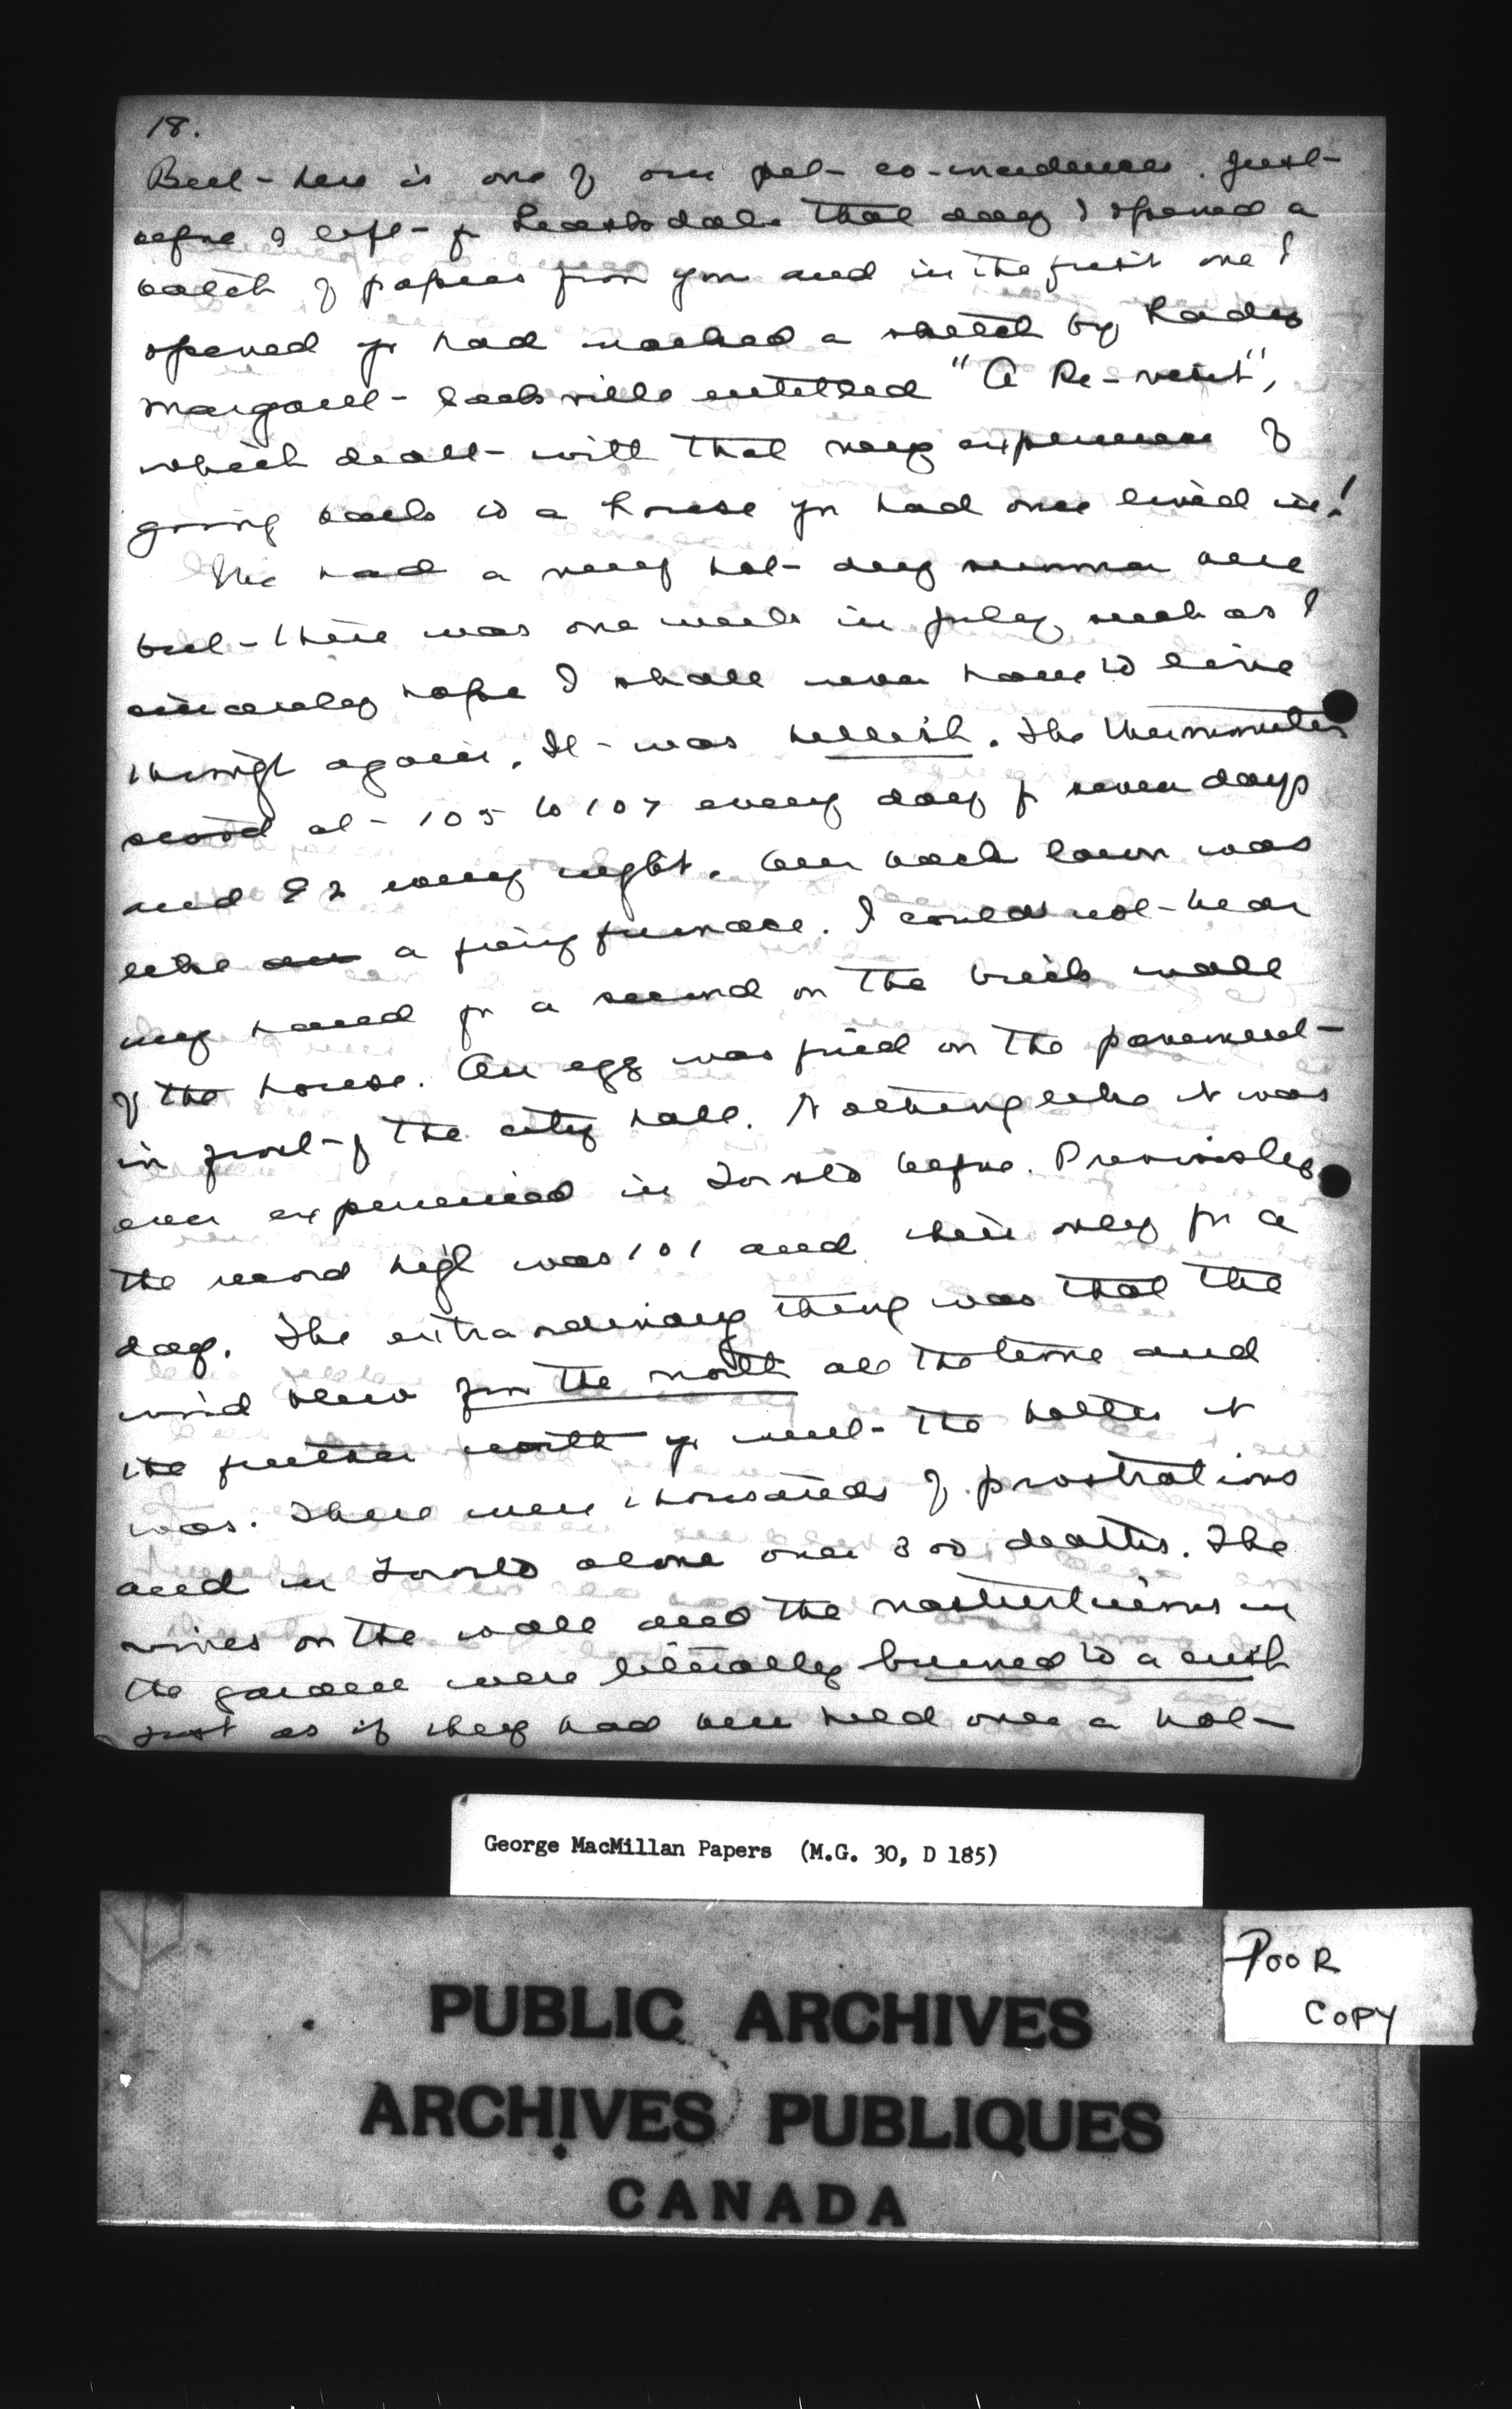 18.
But here is one of our pet co-incidences. Just
before I left for Leaskdale that day I opened a
batch of papers from you and in the first one I
opened you had marked a sketch by Lady
Margaret Sackville entitled "A Re-visit",
which dealt with that very experience of
going back to a house you had once lived in!
We had a very hot dry summer here
but there was one week in July such as I
sincerely hope I shall never have to live
through again. It was hellish. The thermometer
stood at 105 to 107 every day for seven days
and 92 every night. Our back lawn was
like a fiery furnace. I could not bear
my hand for a second on the brick wall
of the house. An egg was fried on the pavement
in front of the city hall. Nothing like it was
ever experienced in Toronto before. Previously
the record high was 101 and then only for a
day. The extraordinary thing was that the
wind blew from the north all the time and
the further north you went the hotter it
was. There were thousands of prostrations
and in Toronto alone over 300 deaths. The
vines on the wall and the nasturtiums in
the garden were literally burned to a crisp
just as if they had been held over a hot
George MacMillan Papers (M.G. 30, D 185)
POOR
COPY
PUBLIC ARCHIVES
ARCHIVES PUBLIQUES
CANADA